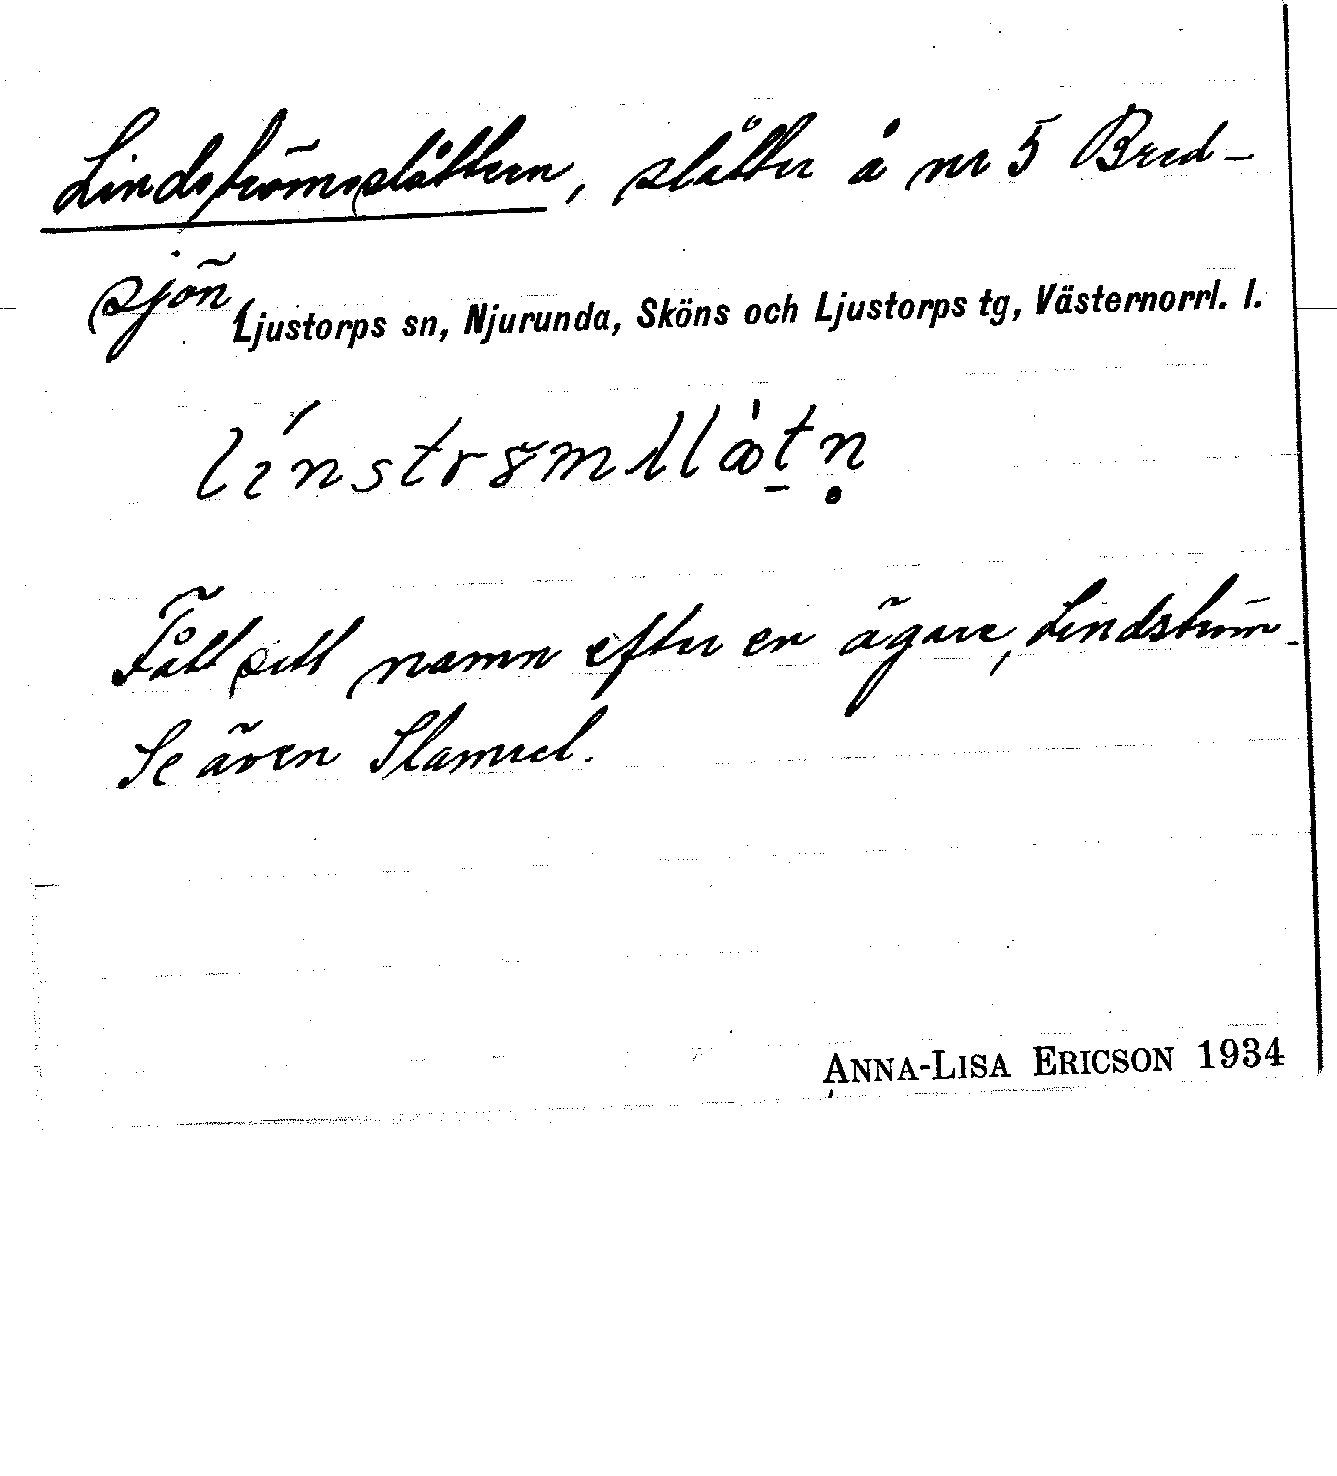 Lindströmsslåttern, slåtter å nr 5 Bred-
sjön
Ljustorps sn, Njurunda, Sköns och Ljustorps tg, Västernorrl. l.
Fått sitt namn efter en ägare, Lindström.
Se även Slamsel.
ANNA-LISA ERICSON 1934